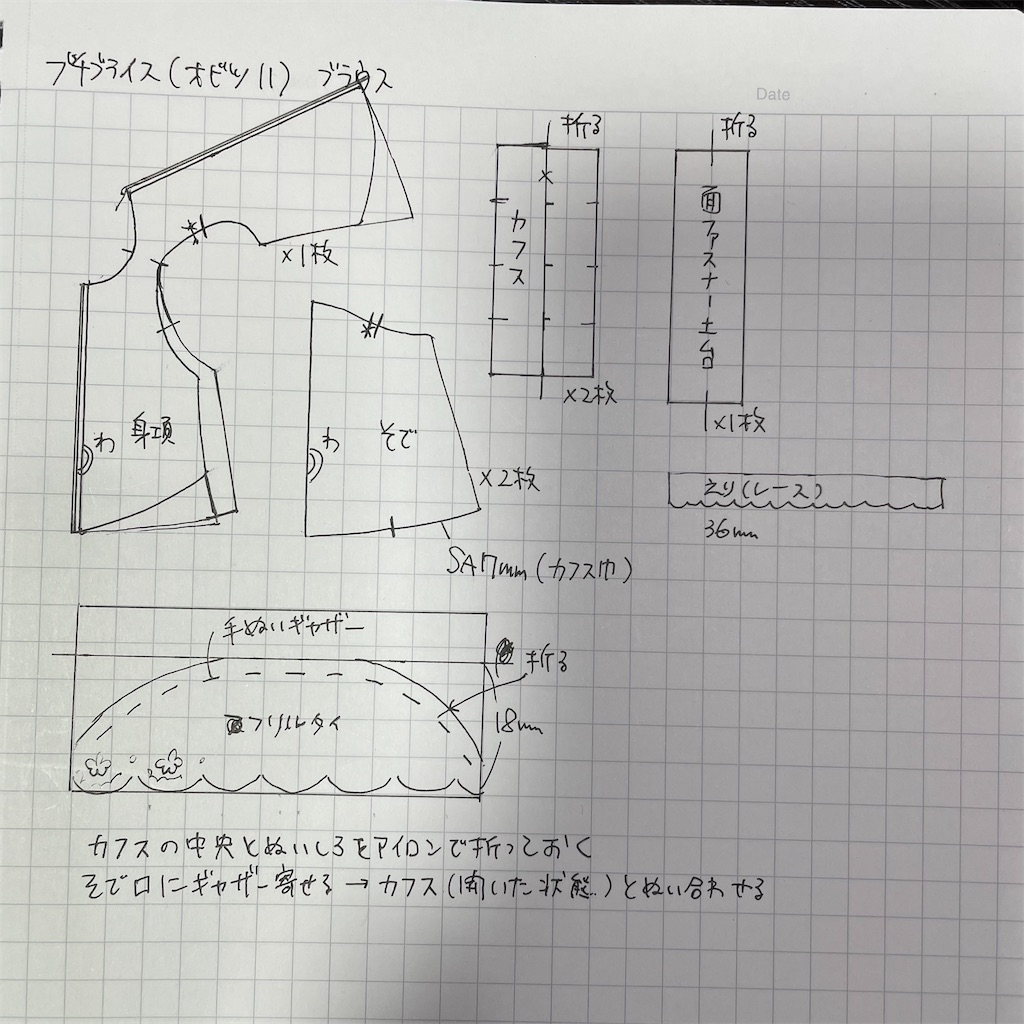 プチブライス(オビツ11) ブラウス
Date
×1枚
わ
身頃
わ
そで
×2枚
SA7mm(カフス巾)
折る
カフス
×2枚
折る
面ファスナー土台
×1枚
えり(レース)
36mm
手ぬいギャザー
折る
フリルタイ
18mm
カフスの中央とぬいしろをアイロンで折っておく
そで口にギャザー寄せる→カフス(開いた状態)とぬい合わせる